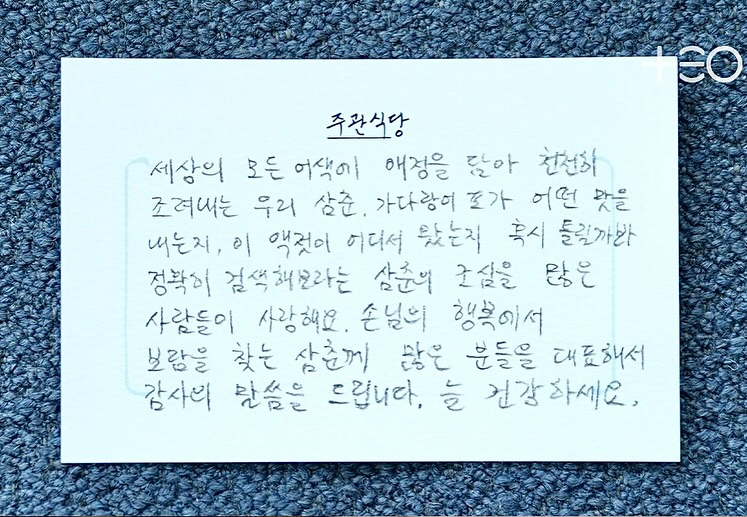 TEO
주관식당
세상의 모든 어색에 애정을 담아 천천히
조려내는 우리 삼춘. 가다랑어 포가 어떤 맛을
내는지, 이 액젓이 어디서 왔는지 혹시 틀릴까봐
정확히 검색해보라는 삼춘의 조심을 많은
사람들이 사랑해요. 손님의 행복에서
보람을 찾는 삼춘께 많은 분들을 대표해서
감사의 말씀을 드립니다. 늘 건강하세요.